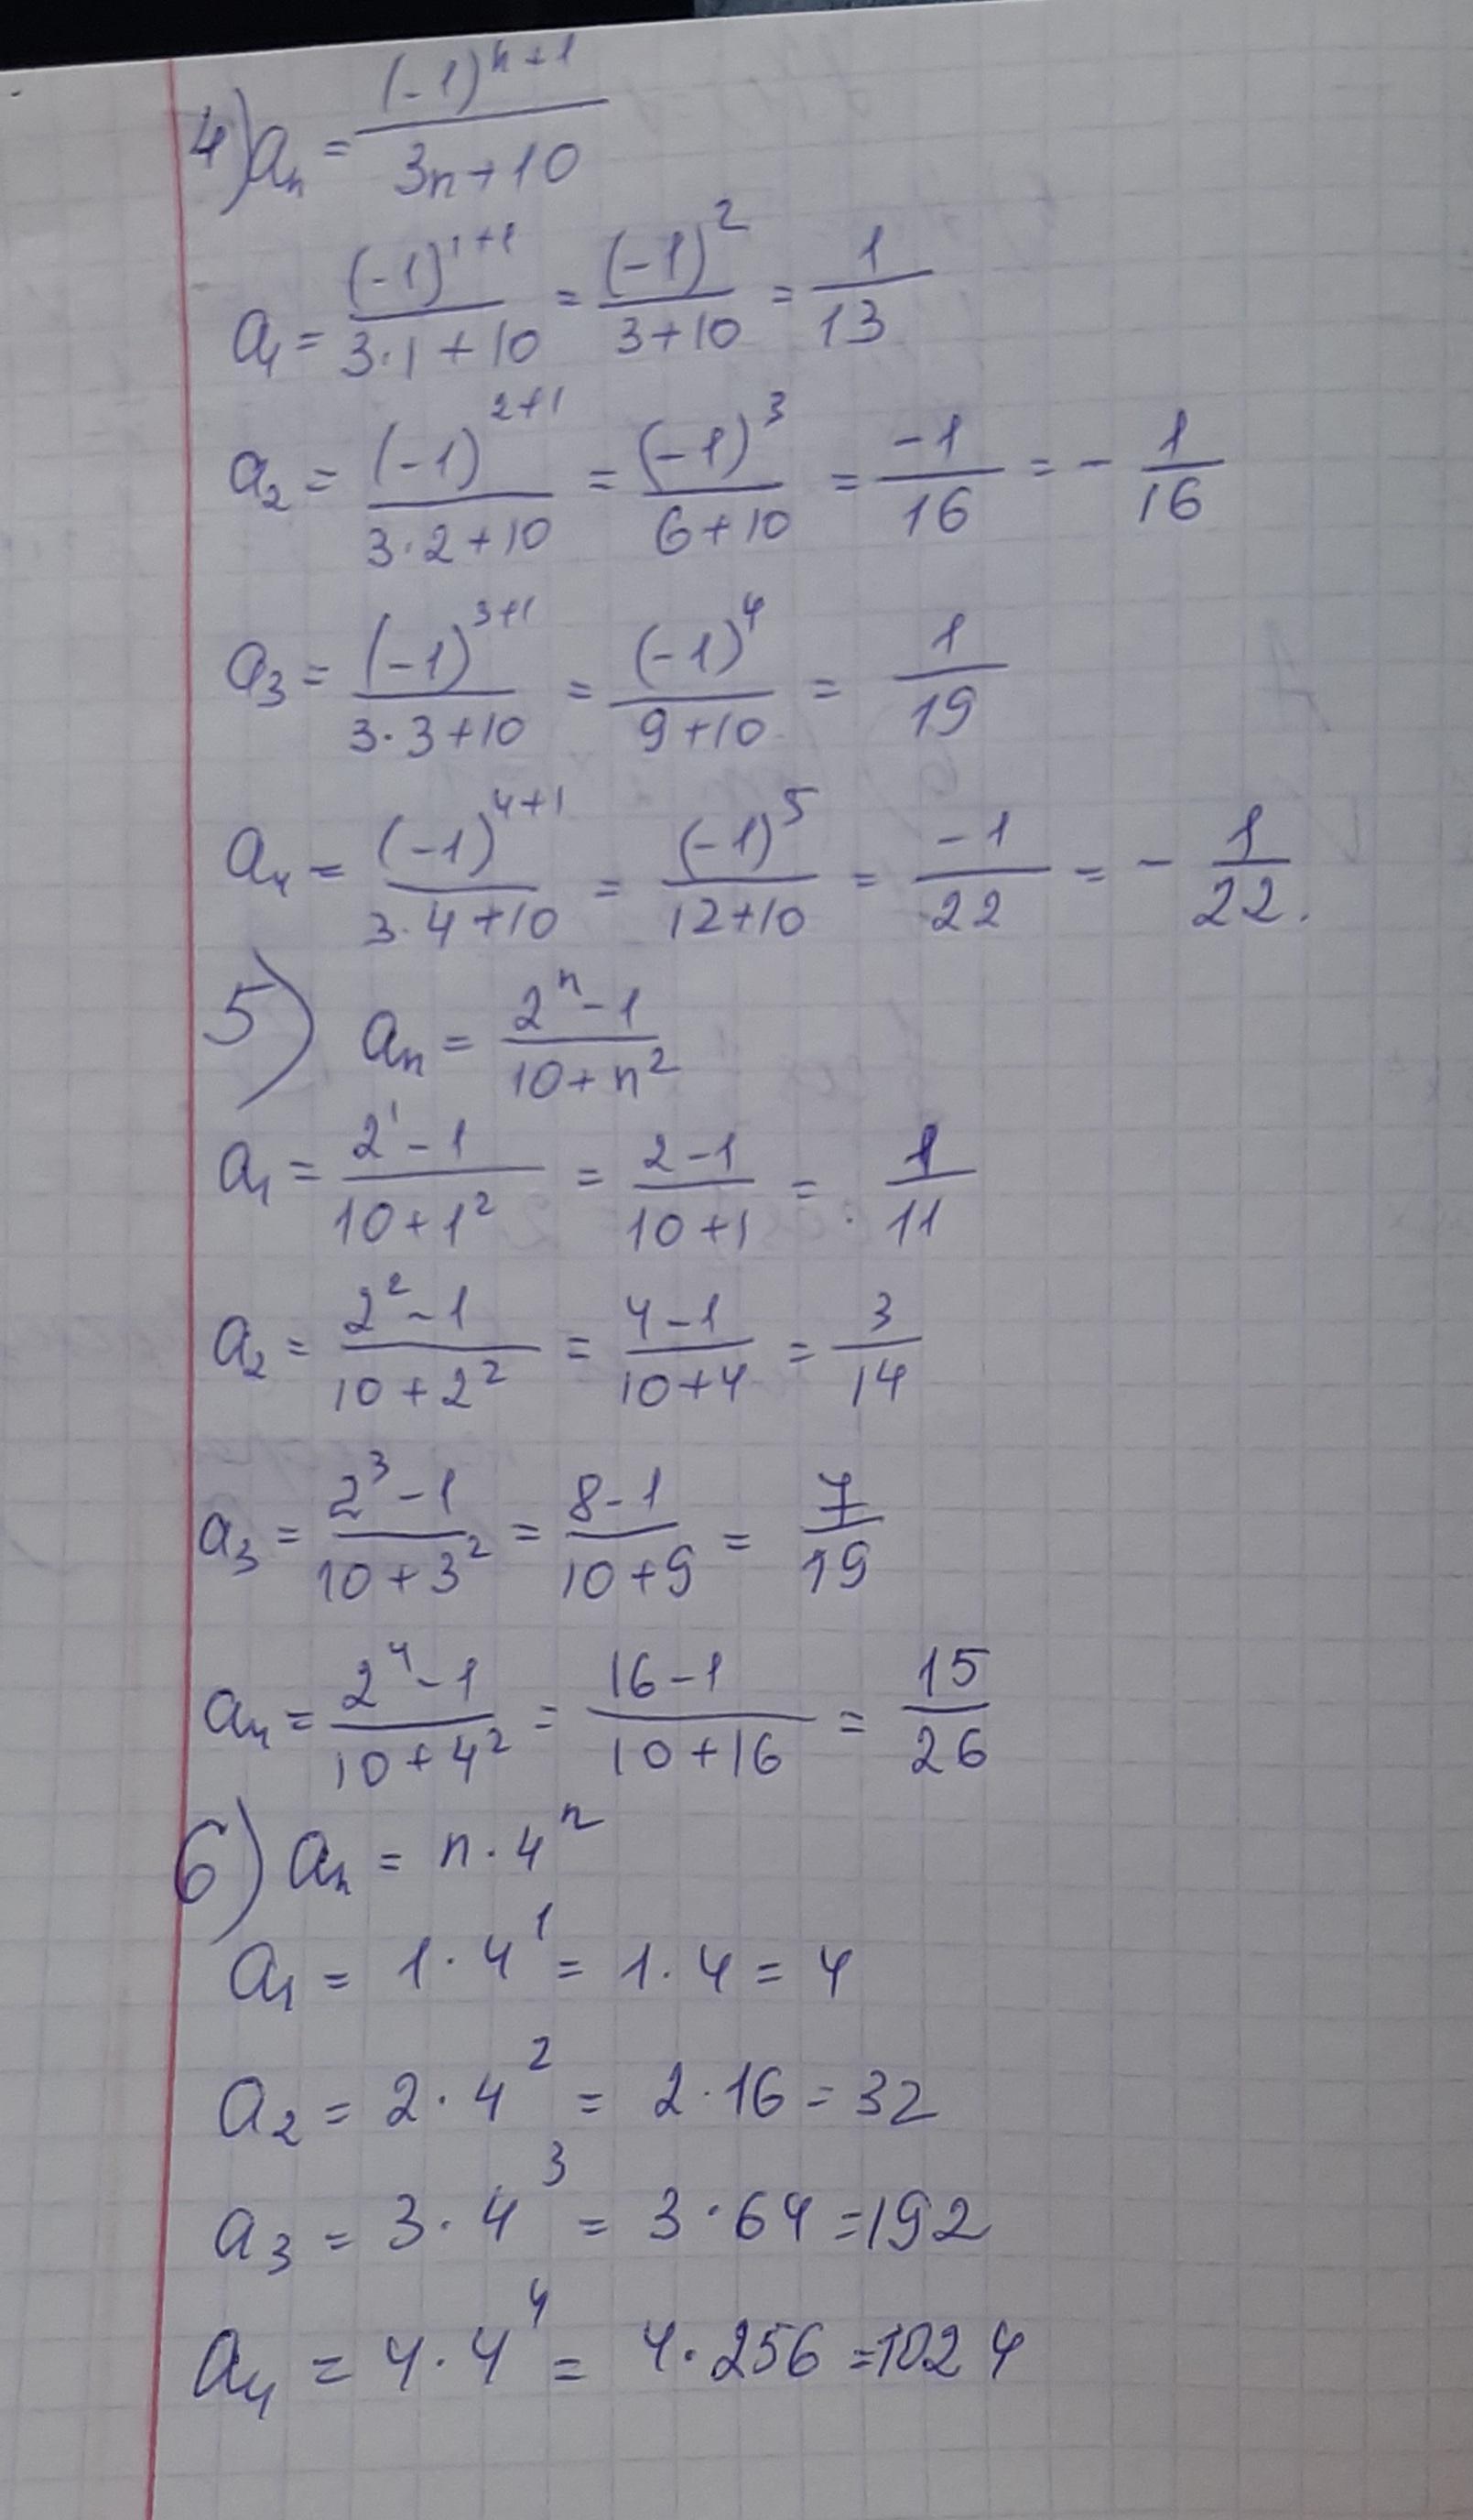 4) aₙ = (-1)ⁿ⁺¹ / (3n+10)
a₁ = (-1)¹⁺¹ / (3·1+10) = (-1)² / (3+10) = 1/13
a₂ = (-1)²⁺¹ / (3·2+10) = (-1)³ / (6+10) = -1/16 = - 1/16
a₃ = (-1)³⁺¹ / (3·3+10) = (-1)⁴ / (9+10) = 1/19
a₄ = (-1)⁴⁺¹ / (3·4+10) = (-1)⁵ / (12+10) = -1/22 = - 1/22.
5) aₙ = (2ⁿ-1) / (10+n²)
a₁ = (2¹-1) / (10+1²) = (2-1) / (10+1) = 1/11
a₂ = (2²-1) / (10+2²) = (4-1) / (10+4) = 3/14
a₃ = (2³-1) / (10+3²) = (8-1) / (10+9) = 7/19
a₄ = (2⁴-1) / (10+4²) = (16-1) / (10+16) = 15/26
6) aₙ = n·4ⁿ
a₁ = 1·4¹ = 1·4 = 4
a₂ = 2·4² = 2·16 = 32
a₃ = 3·4³ = 3·64 = 192
a₄ = 4·4⁴ = 4·256 = 1024